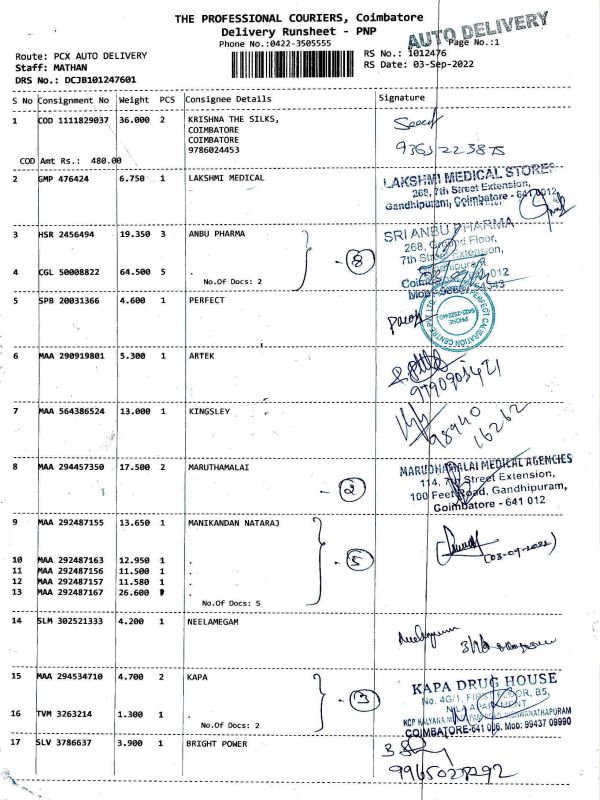 THE PROFESSIONAL COURIERS, Coimbatore
Delivery Runsheet - PNP
Phone No.:0422-3505555
AUTO DELIVERY
Page No.:1
Route: PCX AUTO DELIVERY
Staff: MATHAN
DRS No.: DCJB101247601
RS No.: 1012476
RS Date: 03-Sep-2022
S No Consignment No Weight PCS Consignee Details Signature
1 COD 1111829037 36.000 2 KRISHNA THE SILKS,
COIMBATORE
COIMBATORE
9786024453
COD Amt Rs.: 480.00
2 GMP 476424 6.750 1 LAKSHMI MEDICAL
LAKSHMI MEDICAL STORES
268, 7th Street Extension,
Gandhipuram, Coimbatore - 641 0012
3 HSR 2456494 19.350 3 ANBU PHARMA
SRI ANBU PHARMA
268, Ground Floor,
7th Street Extension,
- 8
4 CGL 50008822 64.500 5 .
No.Of Docs: 2
5 SPB 20031366 4.600 1 PERFECT
PERFECT CALIBRATION CENTRE PVT LTD
PHONE
6 MAA 290919801 5.300 1 ARTEK
7 MAA 564386524 13.000 1 KINGSLEY
98940
16262
8 MAA 294457350 17.500 2 MARUTHAMALAI
- 2
MARUDHAMALAI MEDICAL AGENCIES
114, 7th Street Extension,
100 Feet Road, Gandhipuram,
Coimbatore - 641 012
9 MAA 292487155 13.650 1 MANIKANDAN NATARAJ
(03-09-2022)
10 MAA 292487163 12.950 1 .
- 5
11 MAA 292487156 11.500 1 .
12 MAA 292487157 11.580 1 .
13 MAA 292487167 26.600 1 .
No.Of Docs: 5
14 SLM 302521333 4.200 1 NEELAMEGAM
Neelamegam
15 MAA 294534710 4.700 2 KAPA
- 3
KAPA DRUG HOUSE
No. 4G/1, FIRST FLOOR, B5,
COIMBATORE-641 006. Mob: 99437 09990
16 TVM 3263214 1.300 1 .
No.Of Docs: 2
17 SLV 3786637 3.900 1 BRIGHT POWER
9965027292